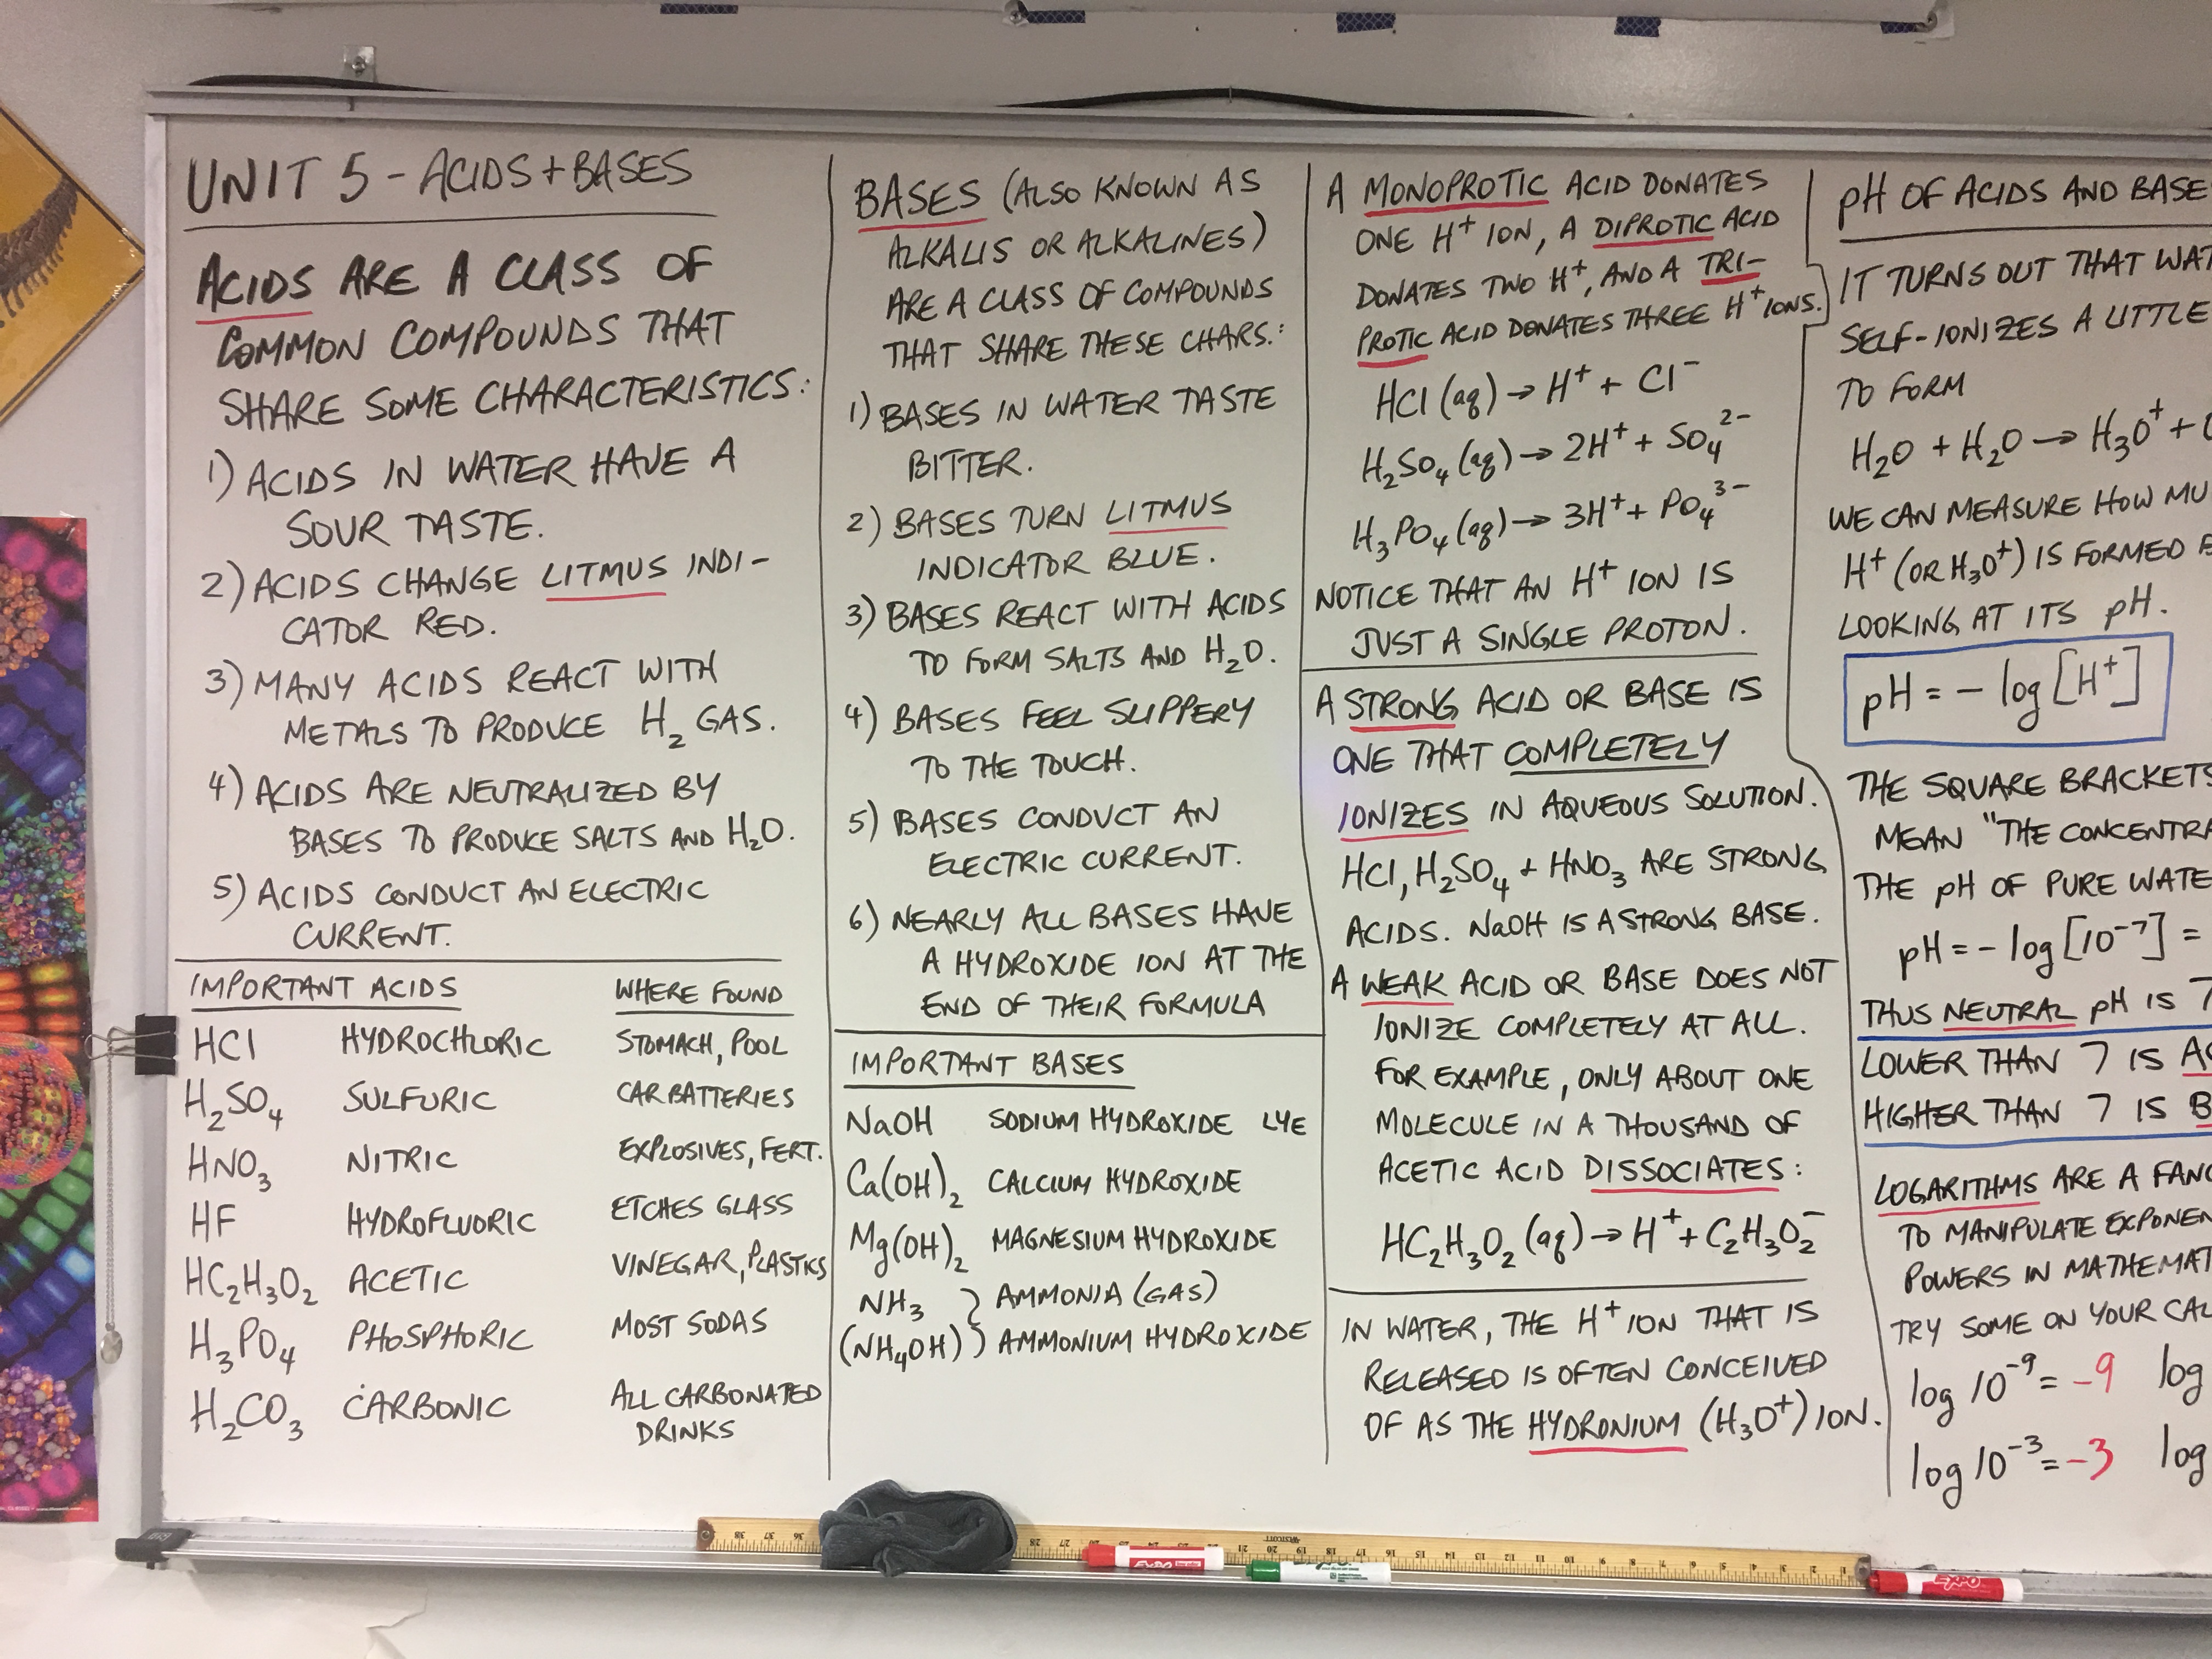 UNIT 5 - ACIDS + BASES
ACIDS ARE A CLASS OF
COMMON COMPOUNDS THAT
SHARE SOME CHARACTERISTICS:
1) ACIDS IN WATER HAVE A
SOUR TASTE.
2) ACIDS CHANGE LITMUS INDI-
CATOR RED.
3) MANY ACIDS REACT WITH
METALS TO PRODUCE H₂ GAS.
4) ACIDS ARE NEUTRALIZED BY
BASES TO PRODUCE SALTS AND H₂O.
5) ACIDS CONDUCT AN ELECTRIC
CURRENT.
IMPORTANT ACIDS WHERE FOUND
HCl HYDROCHLORIC STOMACH, POOL
H₂SO₄ SULFURIC CAR BATTERIES
HNO₃ NITRIC EXPLOSIVES, FERT.
HF HYDROFLUORIC ETCHES GLASS
HC₂H₃O₂ ACETIC VINEGAR, PLASTICS
H₃PO₄ PHOSPHORIC MOST SODAS
H₂CO₃ CARBONIC ALL CARBONATED
DRINKS
BASES (ALSO KNOWN AS
ALKALIS OR ALKALINES)
ARE A CLASS OF COMPOUNDS
THAT SHARE THESE CHARS.:
1) BASES IN WATER TASTE
BITTER.
2) BASES TURN LITMUS
INDICATOR BLUE.
3) BASES REACT WITH ACIDS
TO FORM SALTS AND H₂O.
4) BASES FEEL SLIPPERY
TO THE TOUCH.
5) BASES CONDUCT AN
ELECTRIC CURRENT.
6) NEARLY ALL BASES HAVE
A HYDROXIDE ION AT THE
END OF THEIR FORMULA
IMPORTANT BASES
NaOH SODIUM HYDROXIDE LYE
Ca(OH)₂ CALCIUM HYDROXIDE
Mg(OH)₂ MAGNESIUM HYDROXIDE
NH₃ } AMMONIA (GAS)
(NH₄OH) } AMMONIUM HYDROXIDE
A MONOPROTIC ACID DONATES
ONE H⁺ ION, A DIPROTIC ACID
DONATES TWO H⁺, AND A TRI-
PROTIC ACID DONATES THREE H⁺ IONS.
HCl (aq) → H⁺ + Cl⁻
H₂SO₄ (aq) → 2H⁺ + SO₄²⁻
H₃PO₄ (aq) → 3H⁺ + PO₄³⁻
NOTICE THAT AN H⁺ ION IS
JUST A SINGLE PROTON.
A STRONG ACID OR BASE IS
ONE THAT COMPLETELY
IONIZES IN AQUEOUS SOLUTION.
HCl, H₂SO₄ + HNO₃ ARE STRONG
ACIDS. NaOH IS A STRONG BASE.
A WEAK ACID OR BASE DOES NOT
IONIZE COMPLETELY AT ALL.
FOR EXAMPLE, ONLY ABOUT ONE
MOLECULE IN A THOUSAND OF
ACETIC ACID DISSOCIATES:
HC₂H₃O₂ (aq) → H⁺ + C₂H₃O₂⁻
IN WATER, THE H⁺ ION THAT IS
RELEASED IS OFTEN CONCEIVED
OF AS THE HYDRONIUM (H₃O⁺) ION.
pH OF ACIDS AND BASE
IT TURNS OUT THAT WAT
SELF-IONIZES A LITTLE
TO FORM
H₂O + H₂O → H₃O⁺ +
WE CAN MEASURE HOW MU
H⁺ (OR H₃O⁺) IS FORMED
LOOKING AT ITS pH.
pH = - log [H⁺]
THE SQUARE BRACKETS
MEAN "THE CONCENTRA
THE pH OF PURE WATE
pH = - log [10⁻⁷] =
THUS NEUTRAL pH IS 7
LOWER THAN 7 IS A
HIGHER THAN 7 IS B
LOGARITHMS ARE A FANC
TO MANIPULATE EXPONEN
POWERS IN MATHEMAT
TRY SOME ON YOUR CAL
log 10⁻⁹ = -9 log
log 10⁻³ = -3 log
WESTCOTT
EXPO
EXPO